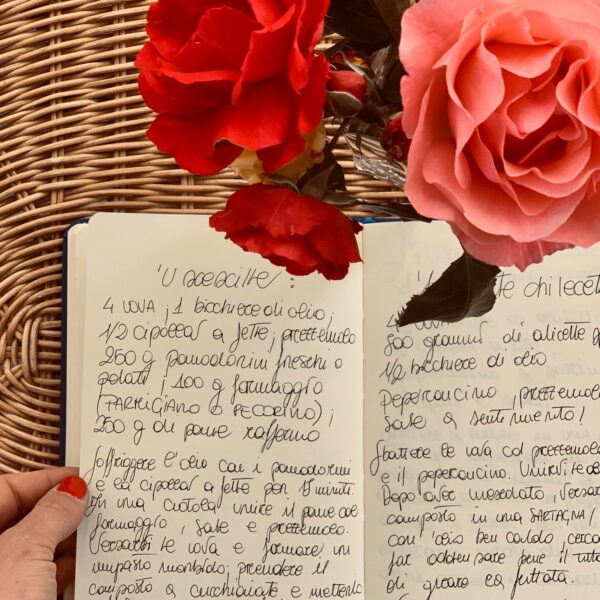 'U sescille :
4 UOVA ; 1 bicchiere di olio ;
1/2 cipolla a fette ; prezzemolo
250 g pomodorini freschi o
pelati ; 100 g formaggio
(PARMIGIANO O PECORINO) ;
250 g di pane raffermo
Soffriggere l'olio con i pomodorini
e la cipolla a fette per 15 minuti.
In una ciotola unire il pane col
formaggio, sale e prezzemolo.
Versarvi le uova e formare un
impasto morbido; prendere il
composto a cucchiaiate e metterlo
te chi lecet
4 UOVA
500 grammi di alicette
1/2 bicchiere di olio
Peperoncino, prezzemolo
sale a sentimento!
Sbattere le uova col prezzemolo
e il peperoncino. Unirvi le
Dopo aver mescolato, versar
composto in una SARTAGNA
con l'olio ben caldo, cerca
far addensare bene il tutto
di girare la frittata.